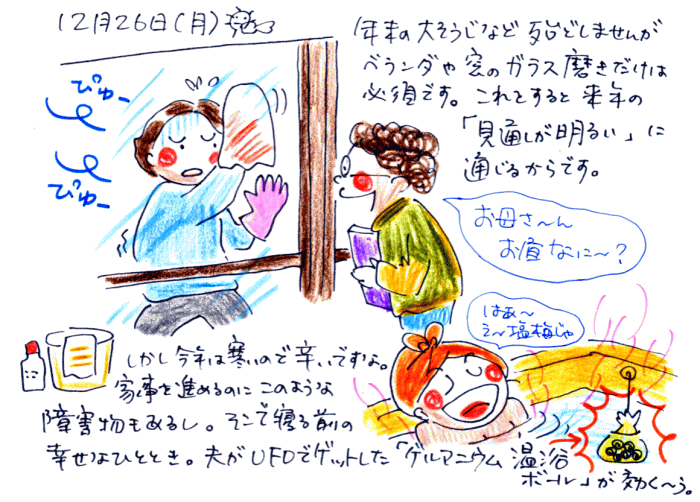 12月26日(月)
年末の大そうじなど殆どしませんが
ベランダや窓のガラス磨きだけは
必須です。これをすると来年の
「見通しが明るい」に
通じるからです。
ぴゅー
ぴゅー
お母さ〜ん
お昼なに〜?
はあ〜
え〜塩梅じゃ
しかし今年は寒いので辛いですよ。
家事を進めるのにこのような
障害物もあるし。そこで寝る前の
幸せなひととき。夫がUFOでゲットした「ゲルマニウム温浴
ボール」が効く〜う。